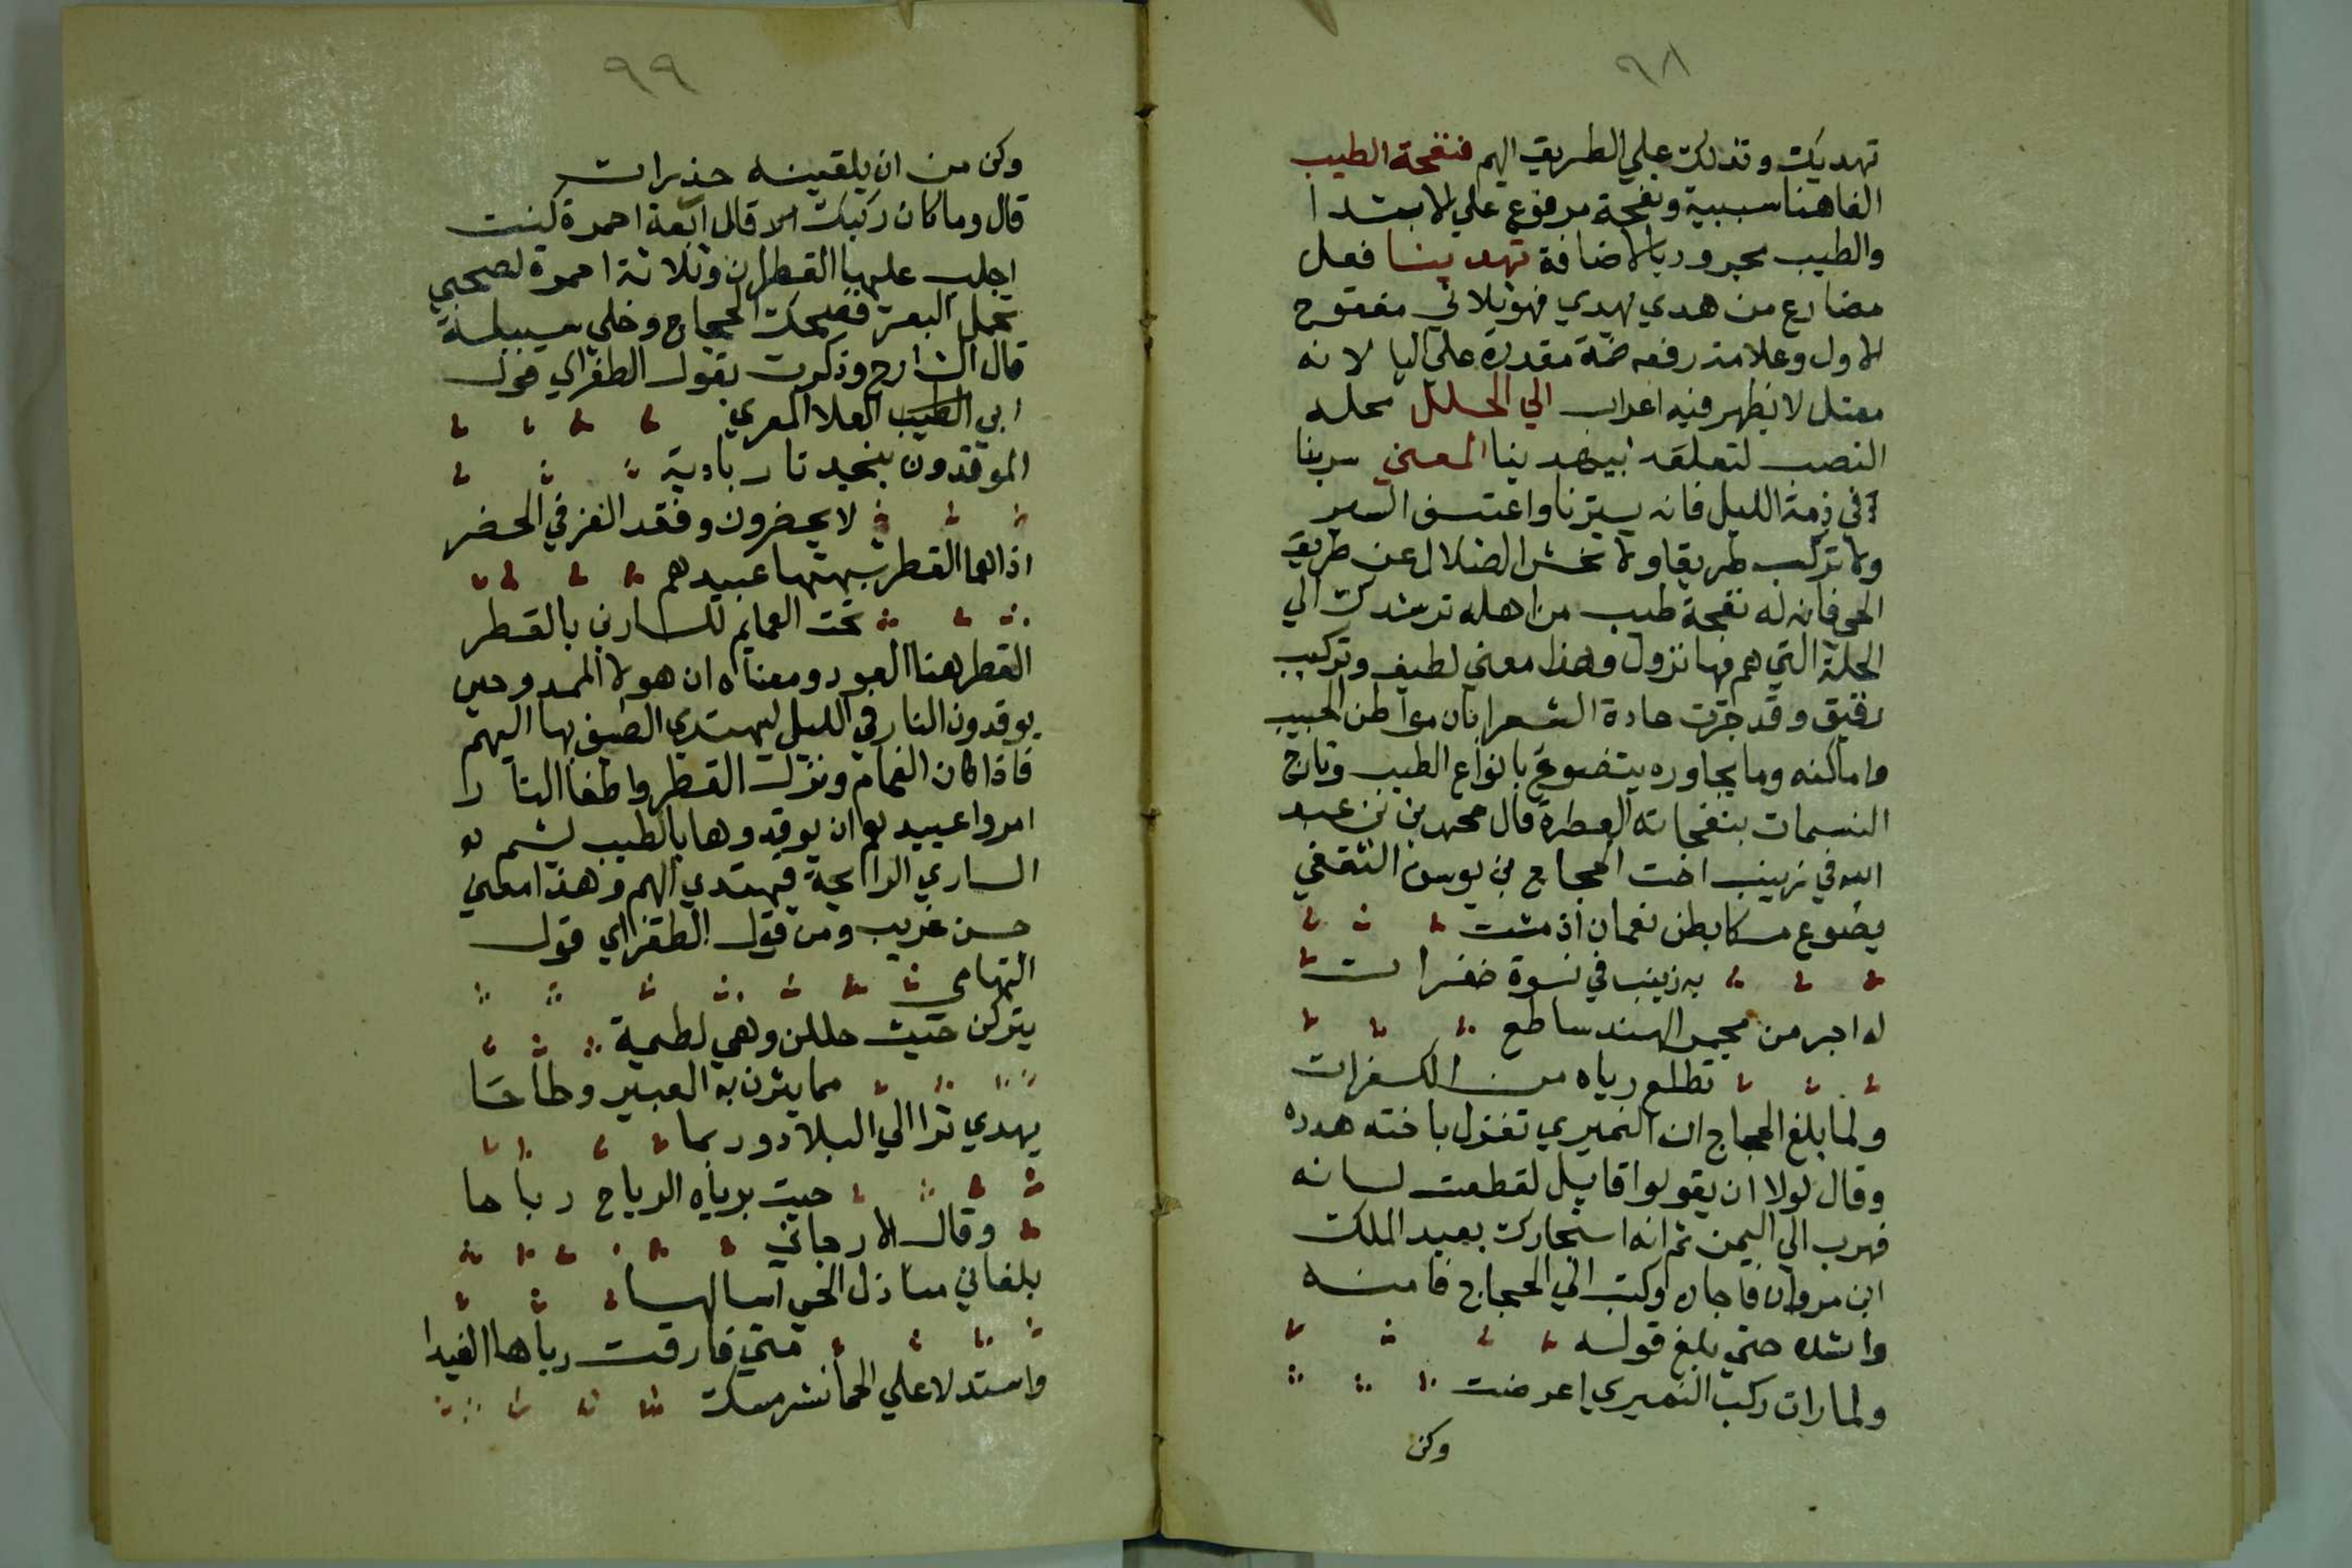 ٩٨
تهديك وتدلك علي الطريق اليهم فنفحة الطيب
الفاهنا سببية ونفحة مرفوع علي الابتدا
والطيب مجرور بالاضافة تهدينا فعل
مضارع من هدي يهدي فهو ثلاثي مفتوح
الاول وعلامة رفعه ضمة مقدرة علي اليا لانه
معتل لا يظهر فيه اعراب الي الحلل محله
النصب لتعلقه بيهدينا المعني سربنا
في ذمة الليل فانه يسترنا واعتسف السير
ولا تركب طريقا ولا تخش الضلال عن طريق
الحي فان له نفحة طيب من اهله ترشدك الي
الحلة التي هم فيها نزول وهذا معني لطيف وتركيب
رقيق وقد جرت عادة الشعرا بان مواطن الحبيب
واماكنه وما يجاوره يتضوع بانواع الطيب وتارج
النسمات بنفحاته العطرة قال محمد بن بن عبد
الله في زينب اخت الحجاج بن يوسف الثقفي
يضوع مسكا بطن نعمان اذ مشت
به زينب في نسوة خفرات
له اجر من مجمر الهند ساطع
تطلع رياه من الكفرات
ولما بلغ الحجاج ان النميري تغزل باخته هدده
وقال لولا ان يقولوا قايل لقطعت لسانه
فهرب الي اليمن ثم انه استجارك بعبد الملك
ابن مروان فاجاره وكتب الي الحجاج فامنه
وانشده حتي بلغ قوله
ولما رات ركب النميري اعرضت
وكن
٩٩
وكن من ان يلقينه حذرات
قال وما كان ركبك الا قال اربعة احمرة كنت
اجلب عليها القطران وثلاثة احمرة لصحبي
تحمل البعر فضحك الحجاج وخلي سبيله
قال الشارح وذكرت بقول الطغراي قول
ابي الطيب العلا المعري
الموقدون بنجد نار بادية
لا يحضرون وفقد العز في الحضر
اذا هما القطر شبهتها عبيدهم
تحت العمايم للسارين بالقطر
القطر هنا العود ومعناه ان هولا الممدوحين
يوقدون النار في الليل ليهتدي الضيف بها اليهم
فاذا كان الغمام ونزل القطر واطفا النار
امروا عبيدهم ان يوقدوها بالطيب ليشم
الساري الرايحة فيهتدي اليهم وهذا معني
حسن غريب ومن قول الطغراي قول
التهامي
يتركن حيث حللن وهي لطيمة
مما يثرن به العبير وطاحا
يهدي ثرا الي البلاد وربما
حيت برياه الرياح رباحا
وقال الارجاني
بلغاني منازل الحي اسالها
متي فارقت رباها الغيدا
واستدلا علي الحما نشر مسك